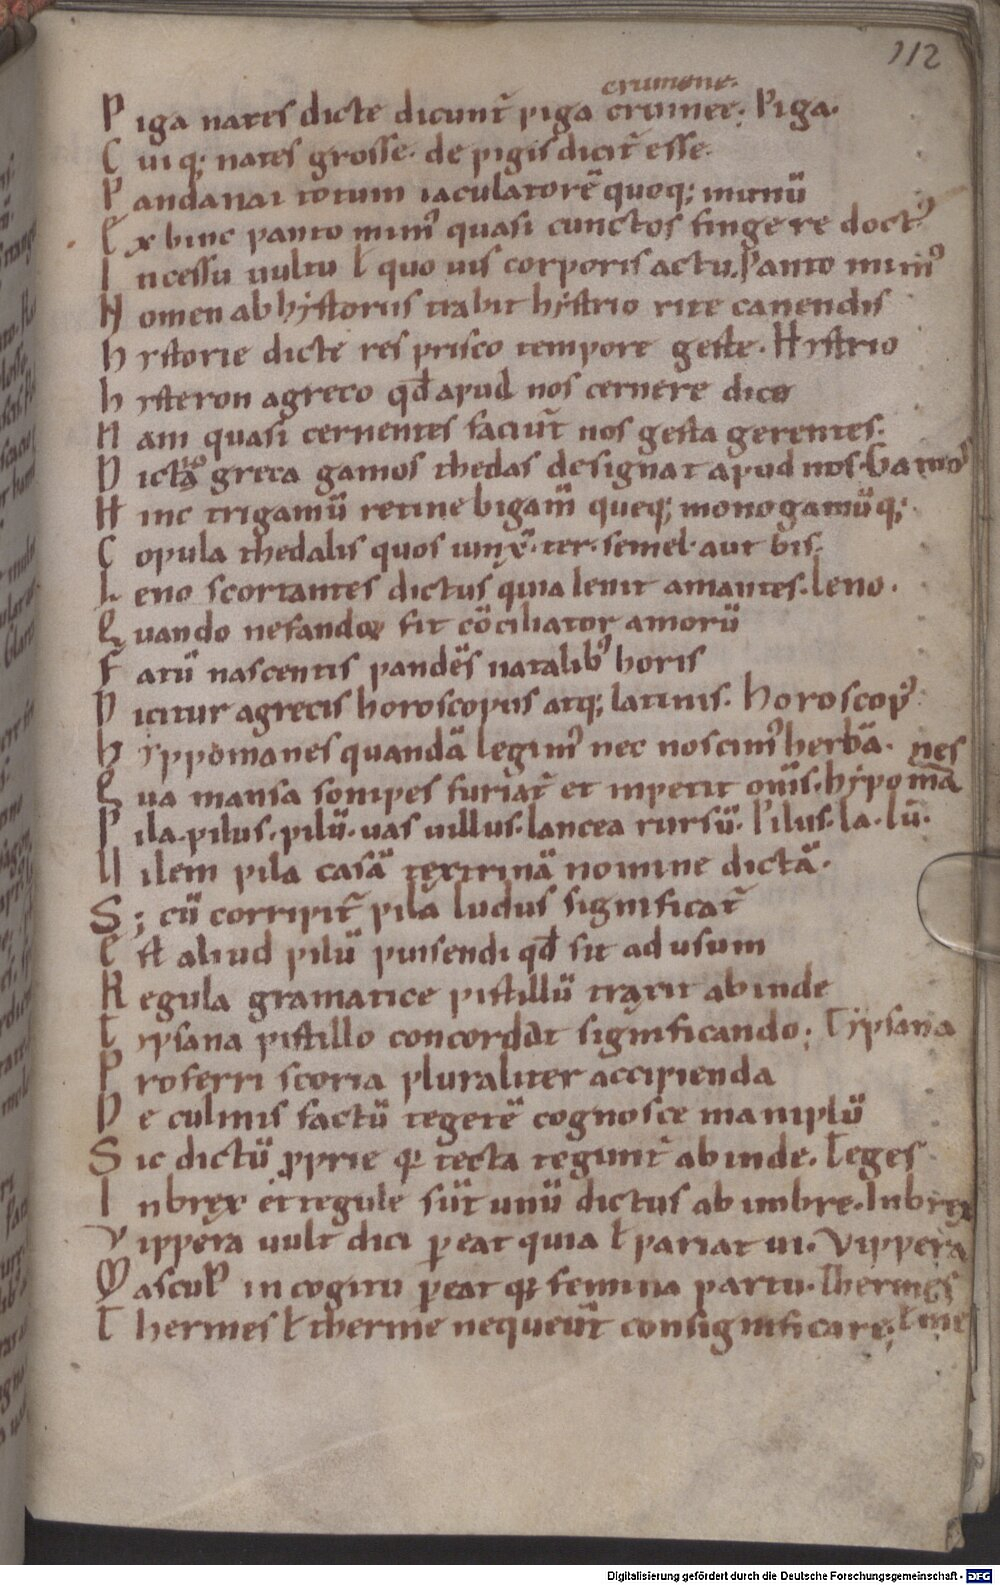 112
crumene.
Piga nates dicte dicunt̃ piga crumee. Piga.
Cuiq; nates grosse. de pigis dicit̃ esse.
Pandanai totum iaculatorẽ quoq; mimũ
Ex hinc panto mim9 quasi cunctos fingere doct9
Incessu uultu ł quo uis corporis actu. Panto mim9
Nomen ab hystoriis trahit hystrio rite canendis
hystorie dicte res prisco tempore geste. Hystrio
hysteron agreco qđ apud nos cernere dico
Nam quasi cernentes faciũt nos gesta gerentes.
Dicta greca gamos thedas designat apud nos. Gamos
Hinc trigamũ retine bigamũ queq; monogamũq;
Copula thedalis quos iunx̃. ter. semel. aut bis.
Leno scortantes dictus quia lenit amantes. Leno.
Quando nefandoꝝ fit cõciliator amorũ
Fatũ nascentis pandẽs natalib9 horis
Dicitur agrecis horoscopus atq; latinis. Horoscop9
hyppomanes quandã legim9 nec noscim9 herbã. nes
Qua mansa sonipes furiat̃ et inpetit om̃s. hypomã
Pila. pilus. pilũ. uas uillus. lancea rursũ. Pilus. la. lũ.
Uilem pila casã textrinã nomine dictã.
S; cũ corripit̃ pila ludus significat̃
Est aliud pilũ pinsendi qđ sit ad usum
Regula gramatice pistillũ traxit abinde
Typsana pistillo concordat significando; Typsana
Proferri scoria pluraliter accipienda
De culmis factũ tegetẽ cognosce maniplũ
Sic dictũ ꝓprie qꝛ tecta tegunt̃ abinde. Teges
Inbrex et tegule sũt unũ dictus ab imbre. Inbrex
Vippera uult dici ꝑeat quia ł pariat ui. Vippera
Mascul9 in cogitu ꝑeat qꝛ femina partu. Thermes
Thermes ł therme nequeũt consignificare; ł me
Digitalisierung gefördert durch die Deutsche Forschungsgemeinschaft - DFG